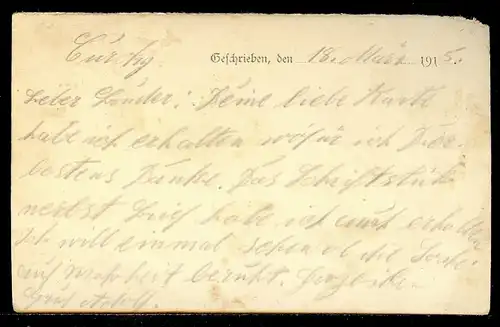 Geschrieben, den 18. März 1915.
Lieber Bruder! Deine liebe Karte
habe ich erhalten wofür ich Dir
bestens Danke. Das Schriftstück
nebst Brief habe ich auch erhalten
Ich will einmal sehen ob die Sache
auf Wahrheit beruht. Herzlichen
Gruß Adolf.